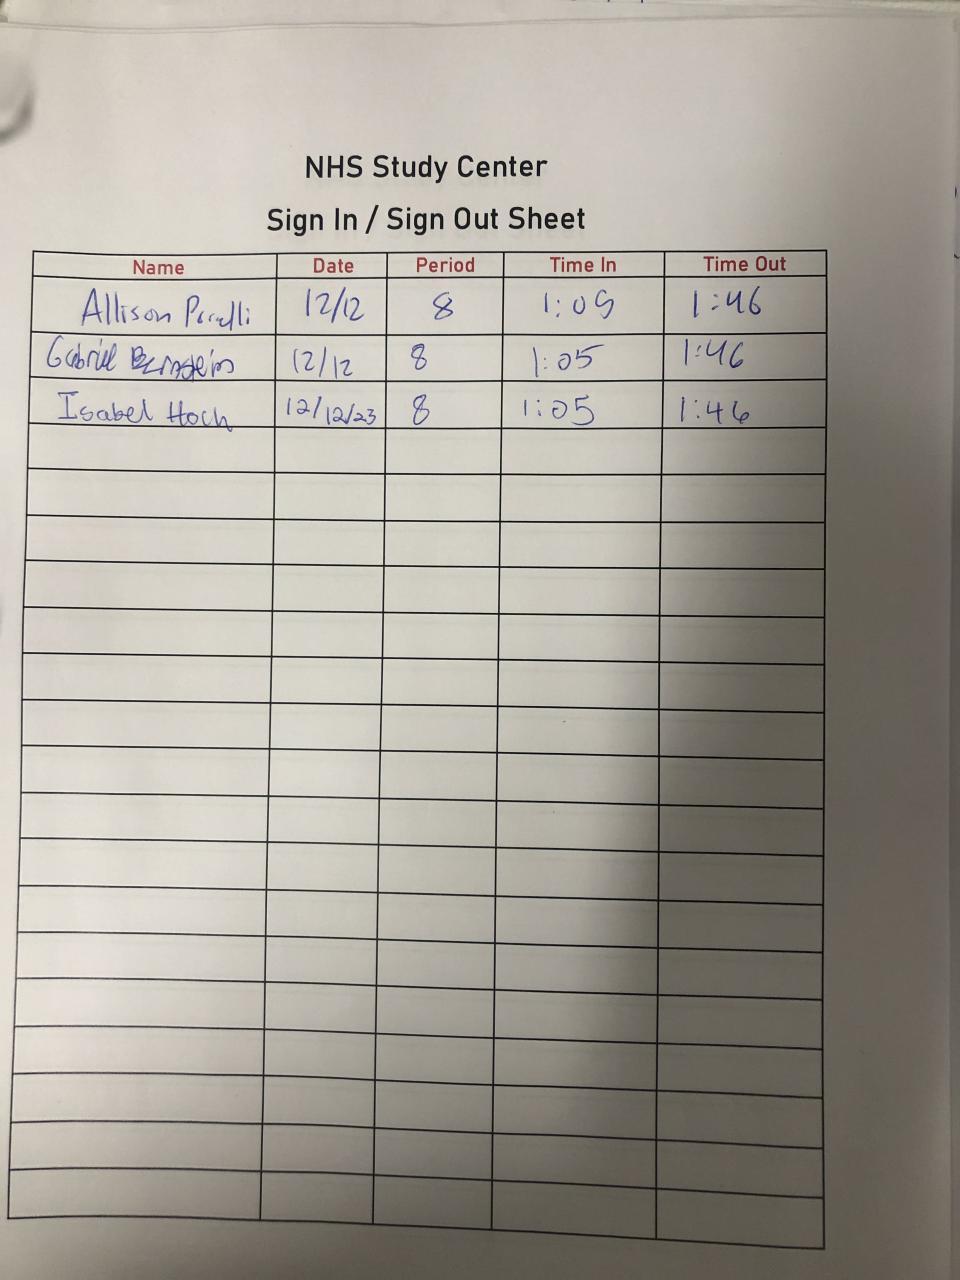 NHS Study Center
Sign In / Sign Out Sheet
Name Date Period Time In Time Out
Allison 12/12 8 1:05 1:46
Gabriel Bernstein 12/12 8 1:05 1:46
Isabel Hoch 12/12/23 8 1:05 1:46